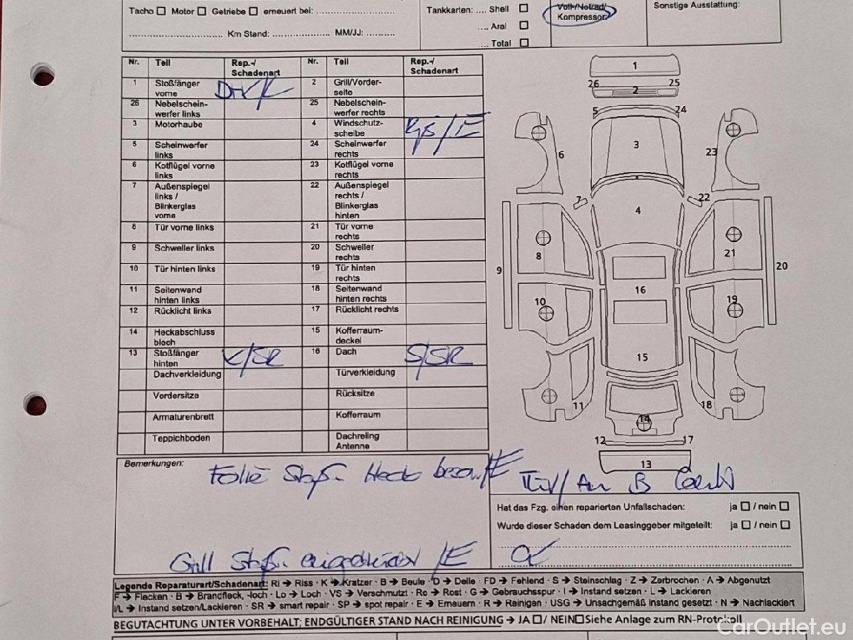 Tacho ☐ Motor ☐ Getriebe ☐ erneuert bei:
Km Stand: MM/JJ:
Tankkarten: Shell ☐
Aral ☐
Total ☐
Kompressor
Sonstige Ausstattung:
Nr. Teil Rep.-/ Schadenart Nr. Teil Rep.-/ Schadenart
1 Stoßfänger vorne 2 Grill/Vorder-seite
26 Nebelschein-werfer links 25 Nebelschein-werfer rechts
3 Motorhaube 4 Windschutz-scheibe /E
5 Scheinwerfer links 24 Scheinwerfer rechts
6 Kotflügel vorne links 23 Kotflügel vorne rechts
7 Außenspiegel links / Blinkerglas vorne 22 Außenspiegel rechts / Blinkerglas hinten
8 Tür vorne links 21 Tür vorne rechts
9 Schweller links 20 Schweller rechts
10 Tür hinten links 19 Tür hinten rechts
11 Seitenwand hinten links 18 Seitenwand hinten rechts
12 Rücklicht links 17 Rücklicht rechts
14 Heckabschluss blech 15 Kofferraum-deckel
13 Stoßfänger hinten K/SR 16 Dach S/SR
Dachverkleidung Türverkleidung
Vordersitze Rücksitze
Armaturenbrett Kofferraum
Teppichboden Dachreling Antenne
1
26 25
2
5 24
3
6 23
7 22
4
8 21
9 20
16
10 19
15
11 18
14
12 17
13
Bemerkungen:
Folie Stoßf. Heck /E
Grill Stoßf. /E
Hat das Fzg. einen reparierten Unfallschaden: ja ☐ / nein ☐
Wurde dieser Schaden dem Leasinggeber mitgeteilt: ja ☐ / nein ☐
Legende Reparaturart/Schadenart: RI → Riss · K → Kratzer · B → Beule · D → Delle · FD → Fehlend · S → Steinschlag · Z → Zerbrochen · A → Abgenutzt
F → Flecken · B → Brandfleck, -loch · Lo → Loch · VS → Verschmutzt · Ro → Rost · G → Gebrauchsspur · I → Instand setzen · L → Lackieren
I/L → Instand setzen/Lackieren · SR → smart repair · SP → spot repair · E → Erneuern · R → Reinigen · USG → Unsachgemäß instand gesetzt · N → Nachlackiert
BEGUTACHTUNG UNTER VORBEHALT; ENDGÜLTIGER STAND NACH REINIGUNG → JA ☐/ NEIN☐Siehe Anlage zum RN-Protokoll
CarOutlet.eu